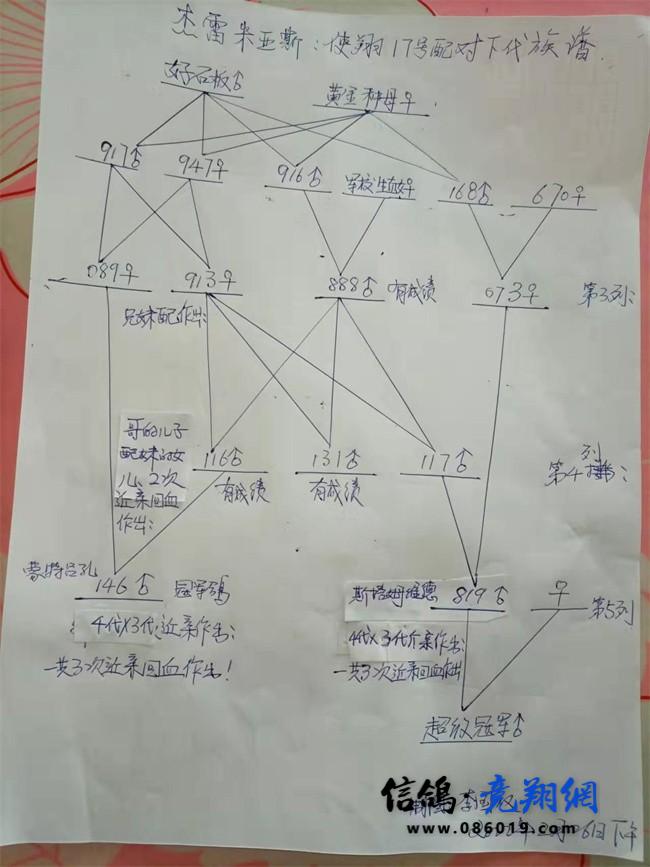 杰雷米亚斯：使翔17号配对下代族谱
好石板♂ 黄金种母♀
917♂ 947♀ 916♂ 军校生血好 168♂ 670♀
089♀ 913♀ 888♂ 有成绩 073♀ 第3列：
兄妹配作出：
哥的儿子
配妹的女
儿、2次
近亲回血
作出：
116♂ 131♂ 117♂ 第4列：
有成绩 有成绩
蒙特吕孔
146♂ 冠军鸽
4代X3代近亲作出：
一共3次近亲回血作出！
斯塔姆维德 819♂ ♀ 第5列
4代X3代近亲作出：
一共3次近亲回血作出
超级冠军♂
信鸽·竞翔網
www.086019.com
6日下午